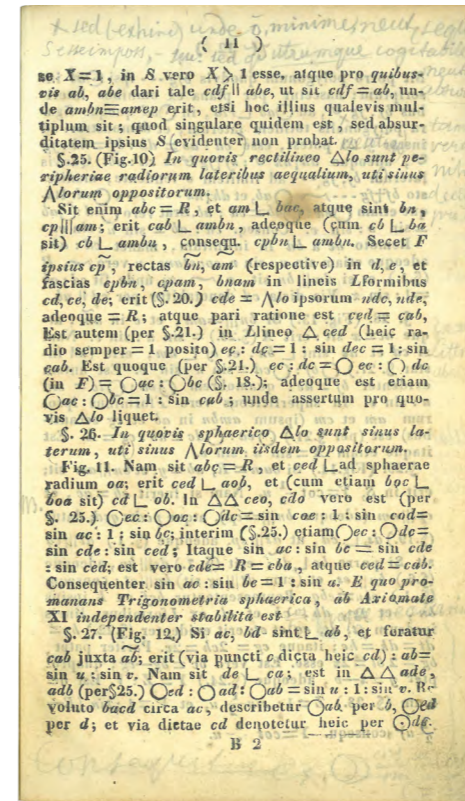 ( 11 )
se X=1, in S vero X > 1 esse, atque pro quibus-
vis ab, abe dari tale cdf || abe, ut sit cdf = ab, un-
de ambn≡amep erit, etsi hoc illius qualevis mul-
tiplum sit; quod singulare quidem est, sed absur-
ditatem ipsius S evidenter non probat.
§.25. (Fig.10) In quovis rectilineo △lo sunt pe-
ripheriae radiorum lateribus aequalium, uti sinus
⋀lorum oppositorum.
Sit enim abc = R, et am ⊥ bac, atque sint bn,
cp ||| am; erit cab ⊥ ambn, adeoque (cum cb ⊥ ba
sit) cb ⊥ ambn, consequ. cpbn ⊥ ambn. Secet F
ipsius cp, rectas bn, am (respective) in d, e, et
fascias cpbn, cpam, bnam in lineis Lformibus
cd, ce, de; erit (§. 20.) cde = ⋀lo ipsorum ndc, nde,
adeoque = R; atque pari ratione est ced = cab,
Est autem (per §.21.) in Llineo △ ced (heic ra-
dio semper = 1 posito) ec : dc = 1 : sin dec = 1 : sin
cab. Est quoque (per §.21.) ec : dc = ◯ ec : ◯ dc
(in F) = ◯ac : ◯bc (§. 18.); adeoque est etiam
◯ac : ◯bc = 1 : sin cab; unde assertum pro quo-
vis △lo liquet.
§. 26. In quovis sphaerico △lo sunt sinus la-
terum, uti sinus ⋀lorum iisdem oppositorum.
Fig. 11. Nam sit abc = R, et ced ⊥ ad sphaerae
radium oa; erit ced ⊥ aob, et (cum etiam boc ⊥
boa sit) cd ⊥ ob. In △△ ceo, cdo vero est (per
§. 25.) ◯ec : ◯oc : ◯dc = sin coe : 1 : sin cod =
sin ac : 1 : sin bc; interim (§.25.) etiam ◯ec : ◯dc =
sin cde : sin ced; Itaque sin ac : sin bc = sin cde
: sin ced; est vero cde = R = cba, atque ced = cab.
Consequenter sin ac : sin bc = 1 : sin a. E quo pro-
manans Trigonometria sphaerica, ab Axiomate
XI independenter stabilita est
§. 27. (Fig. 12.) Si ac, bd sint ⊥ ab, et feratur
cab juxta ab; erit (via puncti c dicta heic cd) : ab =
sin u : sin v. Nam sit de ⊥ ca; est in △△ ade,
adb (per §25.) ◯ed : ◯ad : ◯ab = sin u : 1 : sin v. Re-
voluto bacd circa ac, describetur ◯ab per b, ◯ed
per d; et via dictae cd denotetur heic per ⊙dc.
B 2